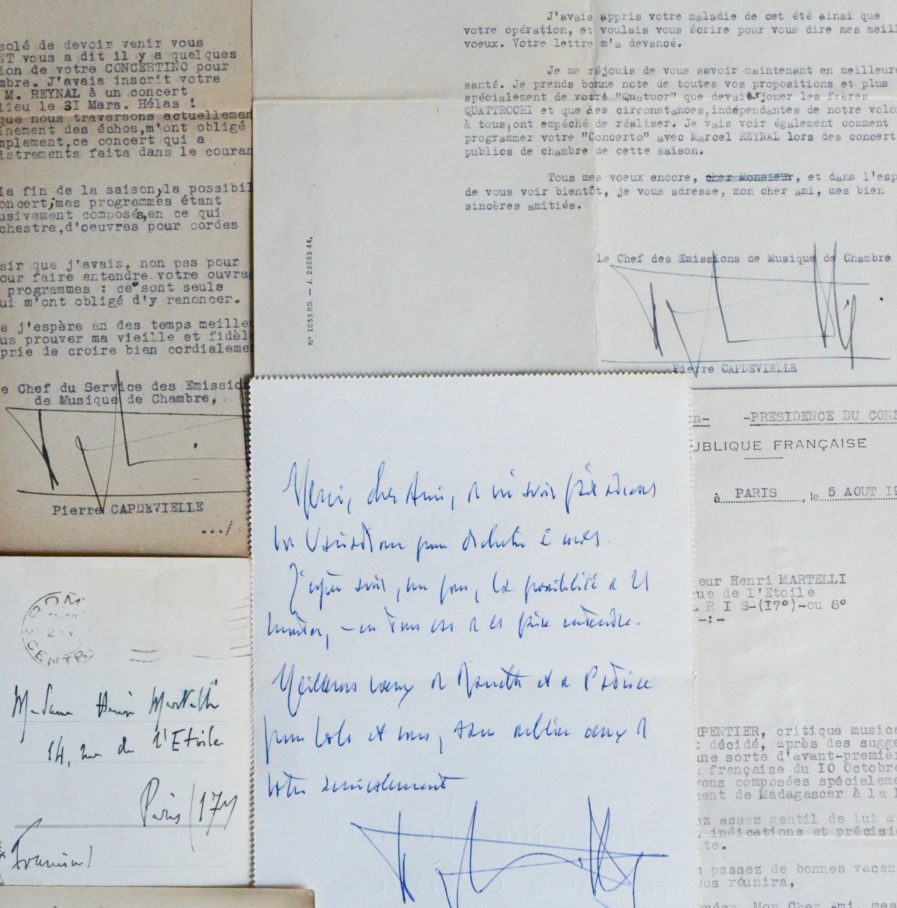 solé de devoir venir vous
NT vous a dit il y a quelques
ion de votre CONCERTINO pour
mbre. J'avais inscrit votre
M. REYNAL à un concert
lieu le 31 Mars. Hélas !
que nous traversons actuellemen
înement des échos,m'ont obligé
mplement,ce concert qui a
istrements faits dans le couran
la fin de la saison,la possibil
oncert,mes programmes étant
usivement composés,en ce qui
chestre,d'oeuvres pour cordes
sir que j'avais, non pas pour
our faire entendre votre ouvra
programmes : ce sont seuls
ui m'ont obligé d'y renoncer.
e j'espère en des temps meille
us prouver ma vieille et fidèl
prie de croire bien cordialeme
e Chef du Service des Emission
de Musique de Chambre,
Pierre CAPDEVIELLE
.../
J'avais appris votre maladie de cet été ainsi que
votre opération, et voulais vous écrire pour vous dire mes meill
voeux. Votre lettre m'a devancé.
Je me réjouis de vous savoir maintenant en meilleure
santé. Je prends bonne note de toutes vos propositions et plus
spécialement de votre "Quatuor" que devaient jouer les frères
QUATTROCHI et que des circonstances,indépendantes de notre volo
à tous,ont empêché de réaliser. Je vais voir également comment
programmer votre "Concerto" avec Marcel REYNAL lors des concert
publics de chambre de cette saison.
Tous mes voeux encore, cher monsieur, et dans l'esp
de vous voir bientôt, je vous adresse, mon cher ami, mes bien
sincères amitiés.
Le Chef des Emissions de Musique de Chambre
Pierre CAPDEVIELLE
N° 1053 BD. — J. 23253-44.
Merci, cher Ami, de
les Variations pour
J'espère la possibilité de
Meilleurs voeux de et de Patrice
pour et vous, sans oublier ceux de
votre
ROMA
CENTRO
Madame Henri Martelli
14, rue de l'Etoile
Paris (17e)
(Francia)
-PRESIDENCE DU CONS
UBLIQUE FRANÇAISE
à PARIS , le 5 AOUT 19
eur Henri MARTELLI
ue de l'Etoile
R I S-(17°)-ou 8°
-:-
RPENTIER, critique musica
décidé, après des sugge
une sorte d'avant-premièr
française du 10 Octobre
ons composées spécialeme
ent de Madagascar à la
ez assez gentil de lui a
indications et précisio
te.
passez de bonnes vacan
ous réunira,
Mon Cher Ami, mes